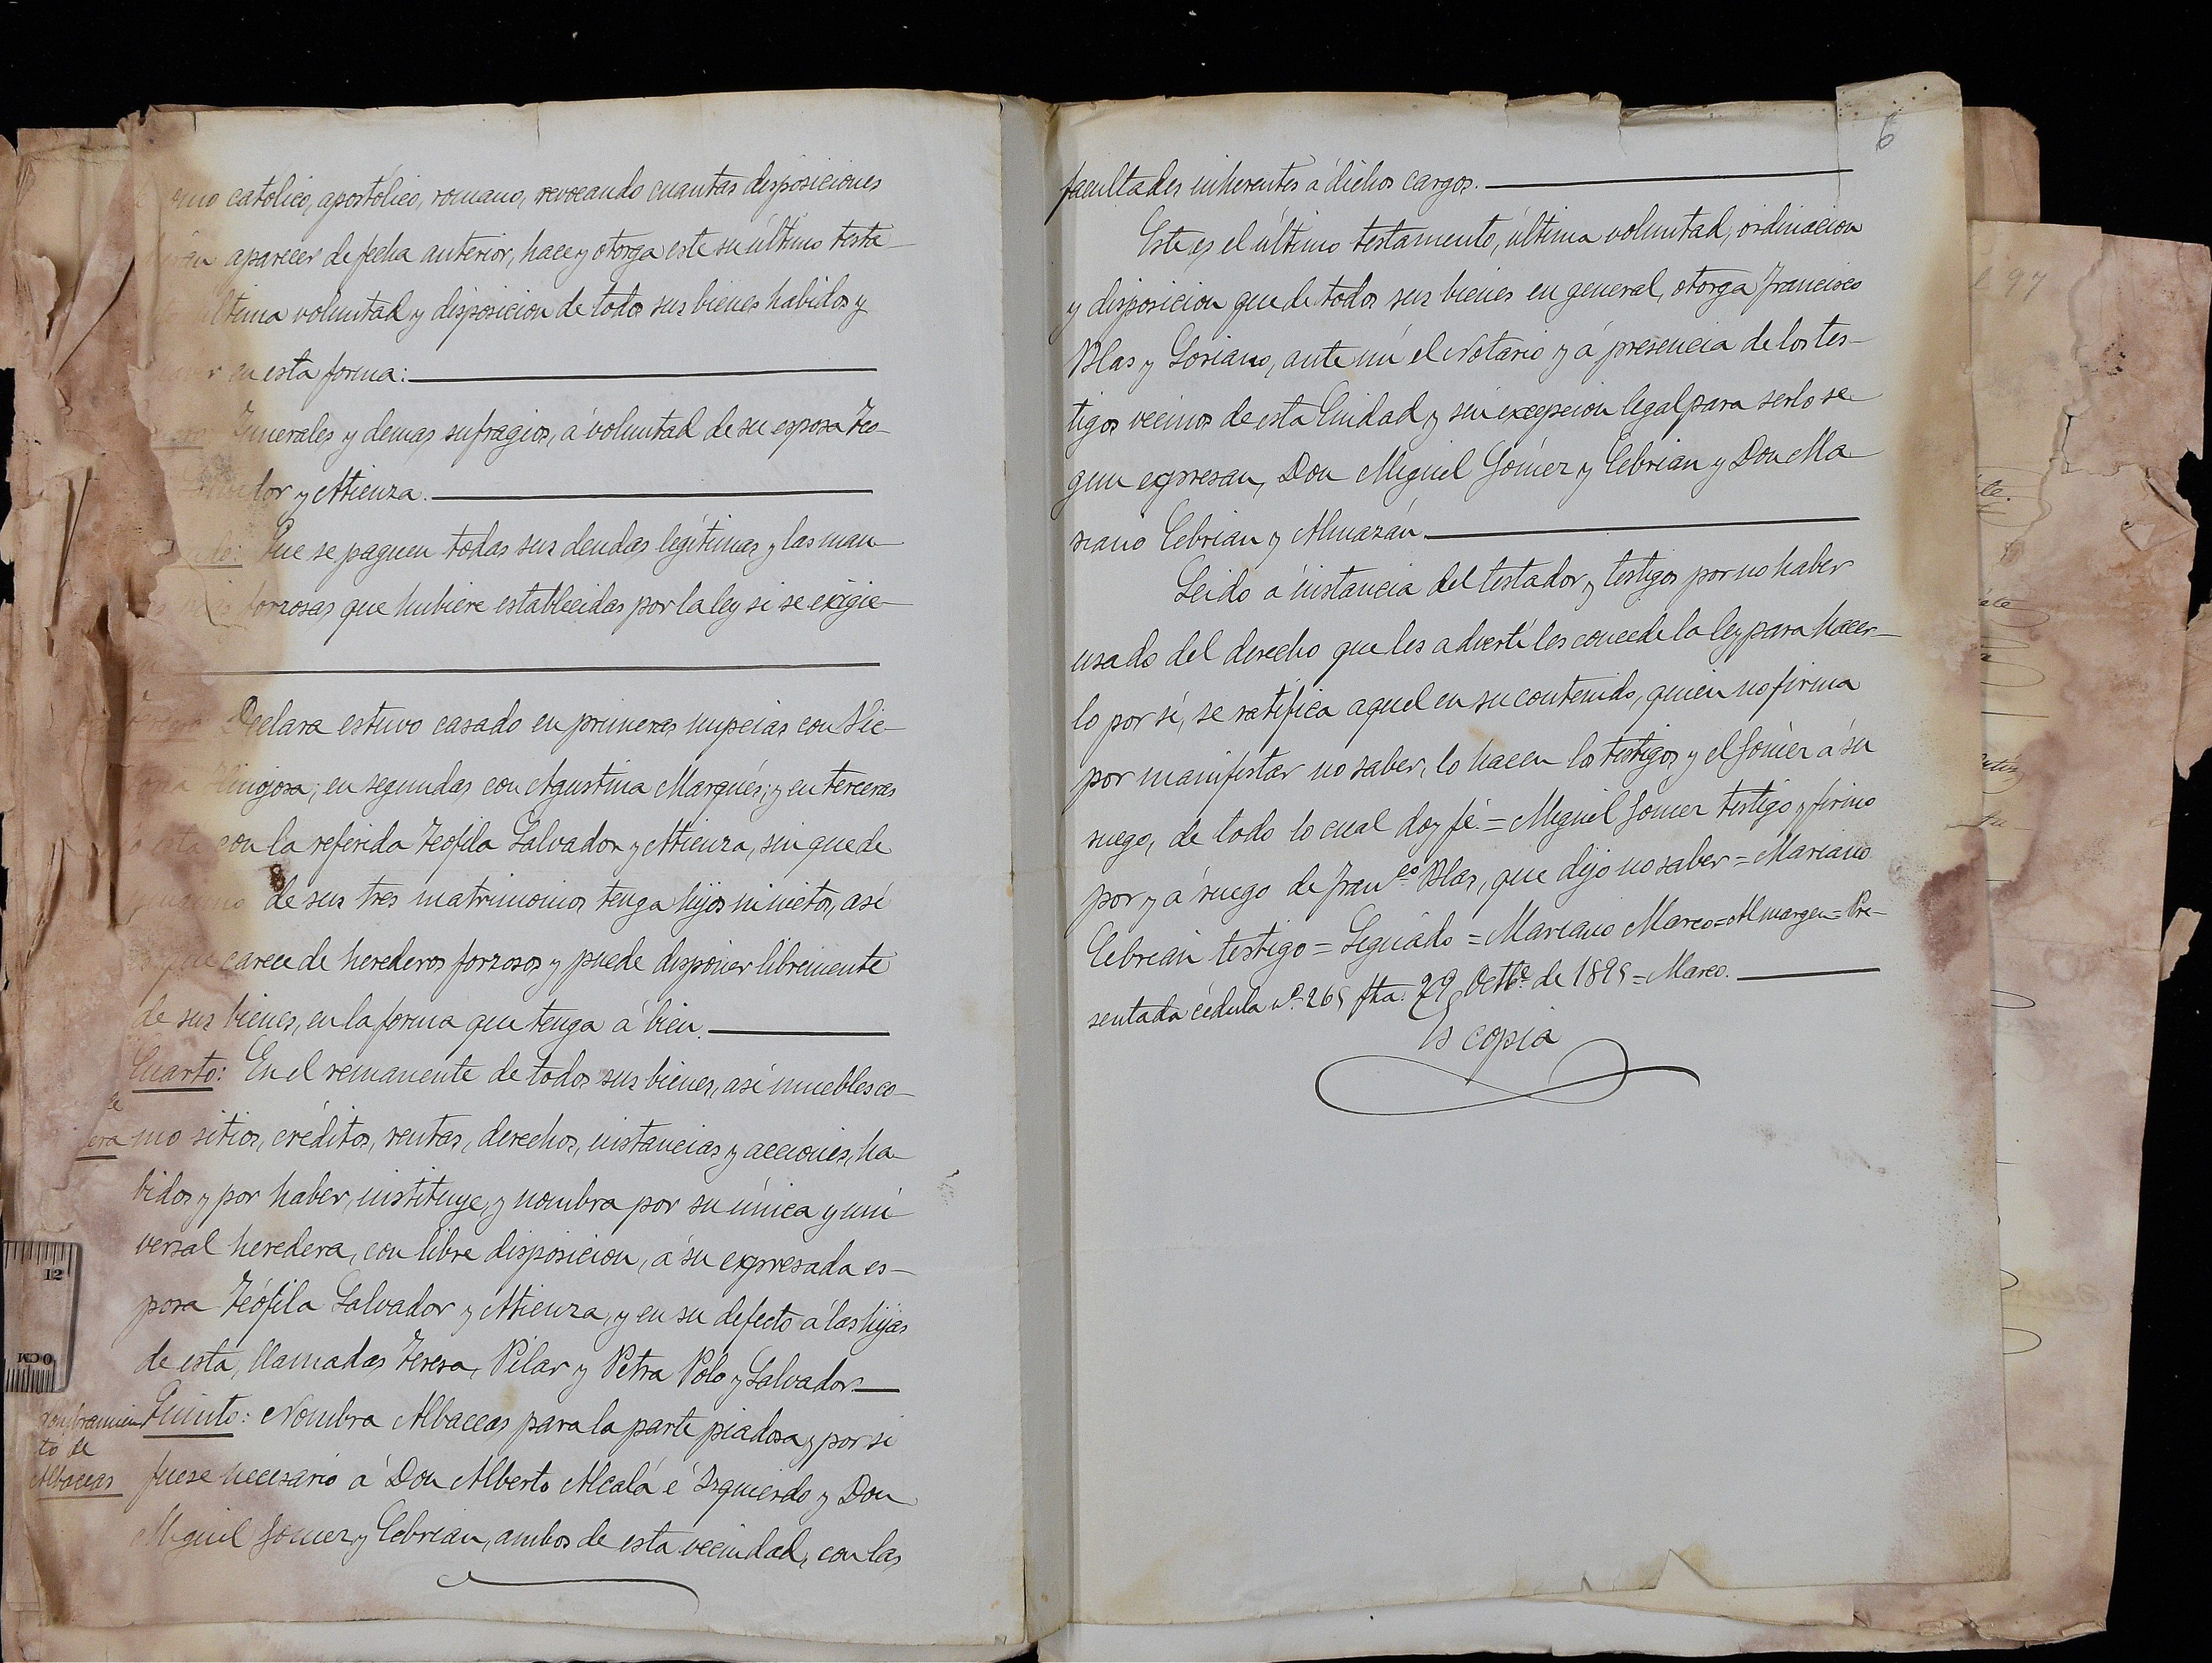 católico, apostólico, romano, revocando cuantas disposiciones
aparecer de fecha anterior, hace y otorga este su último testa-
última voluntad y disposicion de todos sus bienes habidos y
en esta forma:
Funerales y demas sufragios, á voluntad de su esposa Teo-
y Atienza.
Que se paguen todas sus deudas legítimas y las man-
forzosas que hubiere establecidas por la ley si se exigie-
Declara estuvo casado en primeras nupcias con Vic-
Hinojosa; en segundas con Agustina Marqués; y en terceras
con la referida Teófila Salvador y Atienza, sin que de
de sus tres matrimonios tenga hijos ni nietos, así
que carece de herederos forzosos y puede disponer libremente
de sus bienes, en la forma que tenga á bien.
Cuarto: En el remanente de todos sus bienes, así muebles co-
mo sitios, créditos, rentas, derechos, instancias y acciones, ha-
bidos y por haber, instituye y nombra por su única y uni
versal heredera, con libre disposicion, á su expresada es-
posa Teófila Salvador y Atienza, y en su defecto á las hijas
de esta, llamadas Teresa, Pilar y Petra Polo y Salvador.
Nombramien
to de
Albaceas
Quinto: Nombra Albaceas para la parte piadosa y por si
fuese necesario á Don Alberto Alcalá é Izquierdo y Don
Miguel Gomez y Cebrian, ambos de esta vecindad, con las
6
facultades inherentes á dichos cargos.
Este es el último testamento, última voluntad, ordinacion
y disposicion que de todos sus bienes en general, otorga Francisco
Blas y Soriano, ante mí el Notario y á presencia de los tes-
tigos vecinos de esta Ciudad y sin excepcion legal para serlo se-
gun expresan, Don Miguel Gómez y Cebrian y Don Ma-
riano Cebrian y Almazán.
Leido á instancia del testador y testigos por no haber
usado del derecho que les advertí les concede la ley para hacer-
lo por sí, se ratifica aquel en su contenido, quien no firma
por manifestar no saber, lo hacen los testigos y el Gómez á su
ruego, de todo lo cual doy fé.= Miguel Gomez testigo y firmo
por y á ruego de Franco Blas, que dijo no saber = Mariano
Cebrián testigo = Signado = Mariano Marco = Al margen = Pre-
sentada cédula nº 265 fha. 29 Octbe de 1895 = Marco.
Es copia